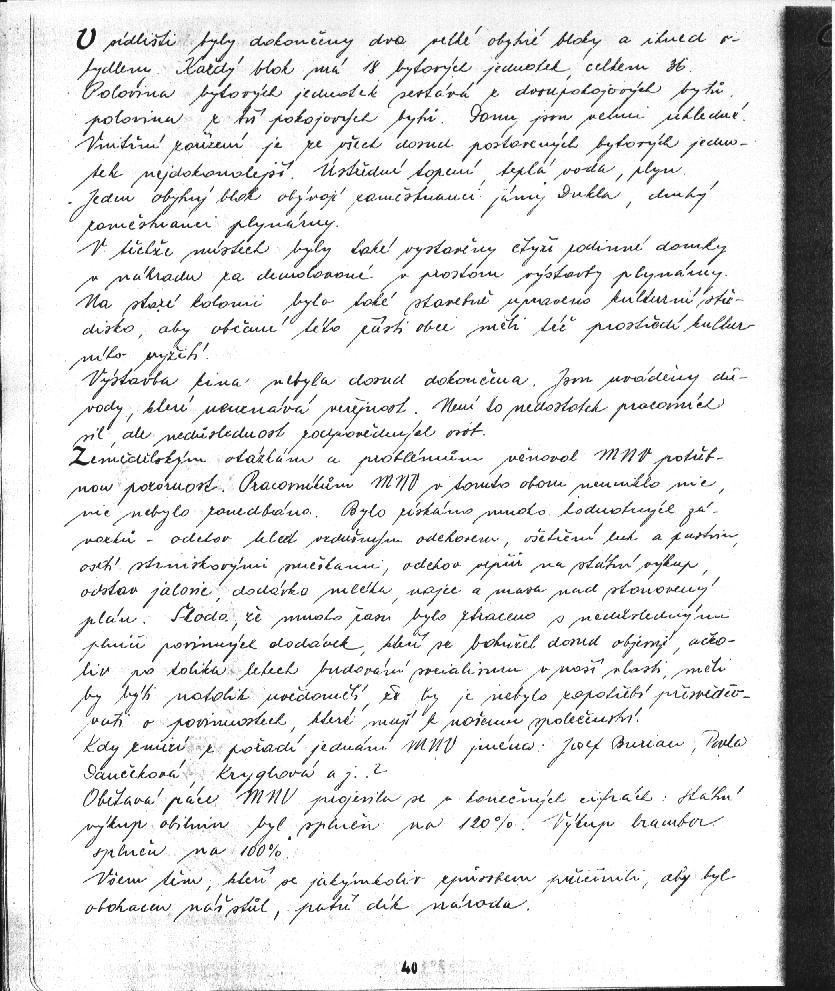 V sídlišti byly dokončeny dva velké obytné bloky a ihned o-
bydleny. Každý blok má 18 bytových jednotek, celkem 36.
Polovina bytových jednotek sestává z dvoupokojových bytů,
polovina z tří pokojových bytů. Domy jsou velmi úhledné.
Vnitřní zařízení je ze všech dosud postavených bytových jedno-
tek nejdokonalejší. Ústřední topení, teplá voda, plyn.
Jeden obytný blok obývají zaměstnanci jámy Dukla, druhý
zaměstnanci plynárny.
V těchže místech byly také vystavěny čtyři rodinné domky
v náhradu za demolované v prostoru výstavby plynárny.
Na staré kolonii bylo také stavebně upraveno kulturní stře-
disko, aby občané této části obce měli též prostředí kultur-
ního vyžití.
Výstavba kina nebyla dosud dokončena. Jsou uváděny dů-
vody, které neuznává veřejnost. Není to nedostatek pracovních
sil, ale nedůslednost zodpovědných osob.
Zemědělským otázkám a problémům věnoval MNV potřeb-
nou pozornost. Pracovníkům MNV v tomto oboru neuniklo nic,
nic nebylo zanedbáno. Bylo získáno mnoho hodnotných zá-
vazků - odchov telat vzdušným odchovem, ošetření luk a pastvin,
osetí strniskovými směskami, odchov vepřů na státní výkup,
odstav jalovic, dodávka mléka, vajec a masa nad stanovený
plán. Škoda, že mnoho času bylo ztraceno s nedůslednými
plniči povinných dodávek, kteří se bohužel dosud objevují, ačko-
liv po tolika letech budování socialismu v naší vlasti, měli
by býti natolik uvědomělí, že by je nebylo zapotřebí přesvědčo-
vati o povinnostech, které mají k našemu společenství.
Kdy zmizí z pořadí jednání MNV jména: Josef Burian, Pavla
Dančíková, Kryglová a j..?
Obětavá práce MNV projevila se v konečných cifrách: Státní
výkup obilnin byl splněn na 120%. Výkup brambor
splněn na 100%.
Všem těm, kteří se jakýmkoliv způsobem přičinili, aby byl
obohacen náš stůl, patří dík národa.
40